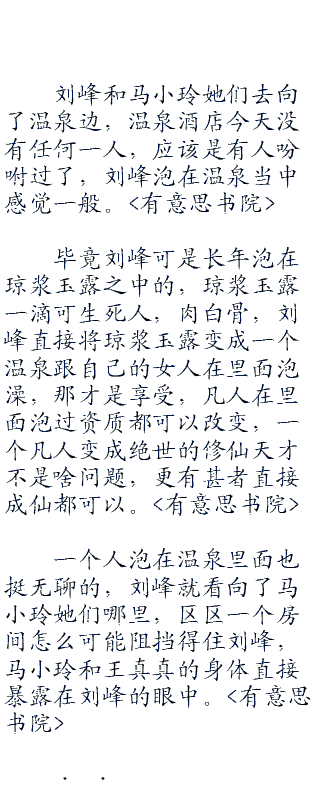 刘峰和马小玲她们去向
了温泉边，温泉酒店今天没
有任何一人，应该是有人吩
咐过了，刘峰泡在温泉当中
感觉一般。<有意思书院>
毕竟刘峰可是长年泡在
琼浆玉露之中的，琼浆玉露
一滴可生死人，肉白骨，刘
峰直接将琼浆玉露变成一个
温泉跟自己的女人在里面泡
澡，那才是享受，凡人在里
面泡过资质都可以改变，一
个凡人变成绝世的修仙天才
不是啥问题，更有甚者直接
成仙都可以。<有意思书院>
一个人泡在温泉里面也
挺无聊的，刘峰就看向了马
小玲她们哪里，区区一个房
间怎么可能阻挡得住刘峰，
马小玲和王真真的身体直接
暴露在刘峰的眼中。<有意思
书院>
．．